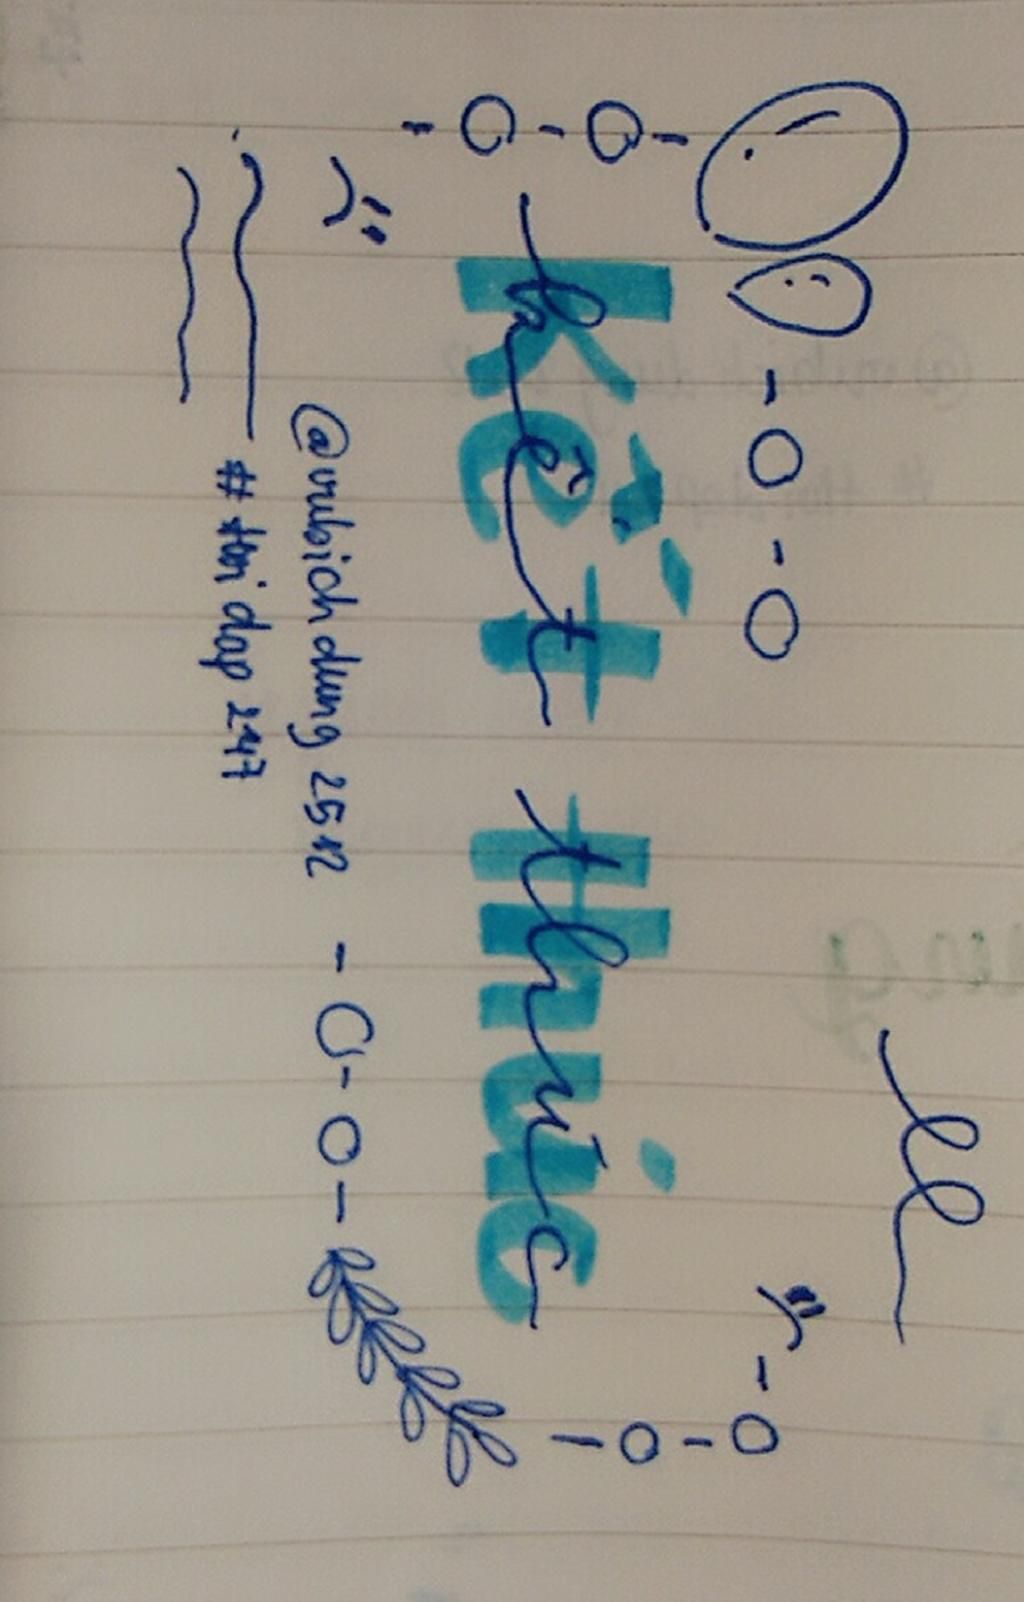 kết thúc
@vubichdung2512
#hoidap247